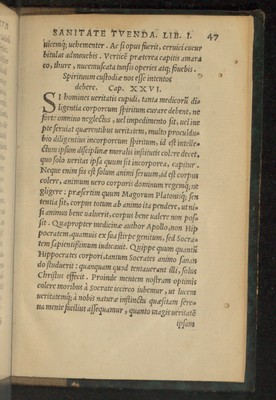 SANITATE TVENDA. LIB. I. 47
uicemq; uehementer. Ac si opus fuerit, ceruici cucur
bitulas admouebis. Verticē præterea capitis amara
co, thure, nucemuscata tunsis operies atq; fouebis.
Spirituum custodiæ nos esse intentos
debere. Cap. XXVI.
SI homines ueritatis cupidi, tanta medicorū di
ligentia corporeum spiritum curare debent, ne
forte omnino neglectus, uel impedimento sit, uel ine
pte seruiat quærentibus ueritatem, multo proculdu-
bio diligentius incorporeum spiritum, id est intelle-
ctum ipsum disciplinæ moralis institutis colere decet,
quo solo ueritas ipsa quum sit incorporea, capitur.
Neque enim fas est solum animi seruum, id est corpus
colere, animum uero corporis dominum regemq; ne
gligere: præsertim quum Magorum Platonisq; sen
tentia sit, corpus totum ab animo ita pendere, ut ni-
si animus bene ualuerit, corpus bene ualere non pos
sit. Quapropter medicinæ author Apollo, non Hip
pocratem quamuis ex sua stirpe genitum, sed Socra
tem sapientissimum iudicauit. Quippe quum quantū
Hippocrates corpori, tantum Socrates animo sanan
do studuerit: quanquam quod tentauerant illi, solus
Christus effecit. Proinde mentem nostram optimis
colere moribus à Socrate iccirco iubemur, ut lucem
ueritatemq; à nobis naturæ instinctu quæsitam sere-
na mente facilius assequamur, quanto magis ueritatē
ipsam